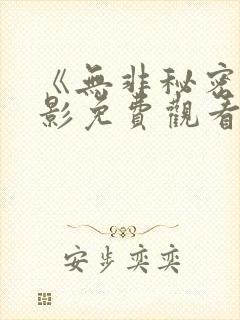 《無非秘密
影免費觀看
安步奕奕